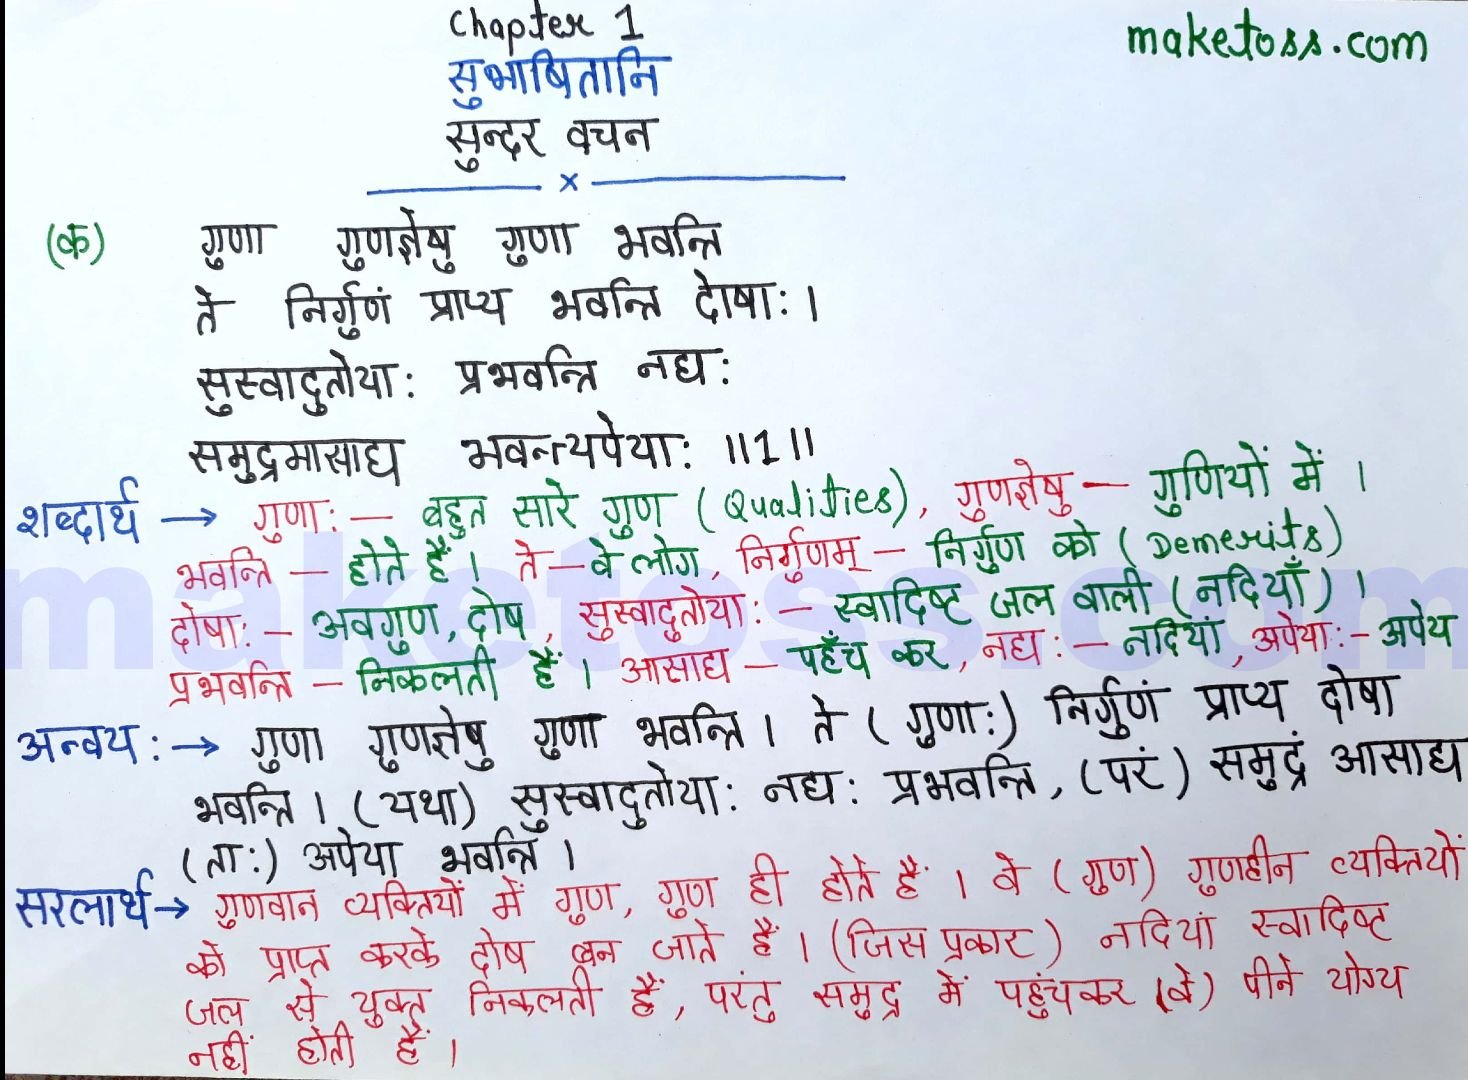 Chapter 1
maketoss.com
सुभाषितानि
सुन्दर वचन
x
(क) गुणा गुणज्ञेषु गुणा भवन्ति
ते निर्गुणं प्राप्य भवन्ति दोषाः।
सुस्वादुतोयाः प्रभवन्ति नद्यः
समुद्रमासाद्य भवन्त्यपेयाः ॥1॥
शब्दार्थ → गुणाः – बहुत सारे गुण (Qualities), गुणज्ञेषु – गुणियों में।
भवन्ति – होते हैं। ते – वे लोग, निर्गुणम् – निर्गुण को (Demerits)
दोषाः – अवगुण, दोष, सुस्वादुतोयाः – स्वादिष्ट जल वाली (नदियाँ)।
प्रभवन्ति – निकलती हैं। आसाद्य – पहँच कर, नद्यः – नदियां, अपेयाः – अपेय
अन्वयः → गुणा गुणज्ञेषु गुणा भवन्ति। ते (गुणाः) निर्गुणं प्राप्य दोषा
भवन्ति। (यथा) सुस्वादुतोयाः नद्यः प्रभवन्ति, (परं) समुद्रं आसाद्य
(ताः) अपेया भवन्ति।
सरलार्थ → गुणवान व्यक्तियों में गुण, गुण ही होते हैं। वे (गुण) गुणहीन व्यक्तियों
को प्राप्त करके दोष बन जाते हैं। (जिस प्रकार) नदियां स्वादिष्ट
जल से युक्त निकलती हैं, परंतु समुद्र में पहुंचकर (वे) पीने योग्य
नहीं होती हैं।
maketoss.com